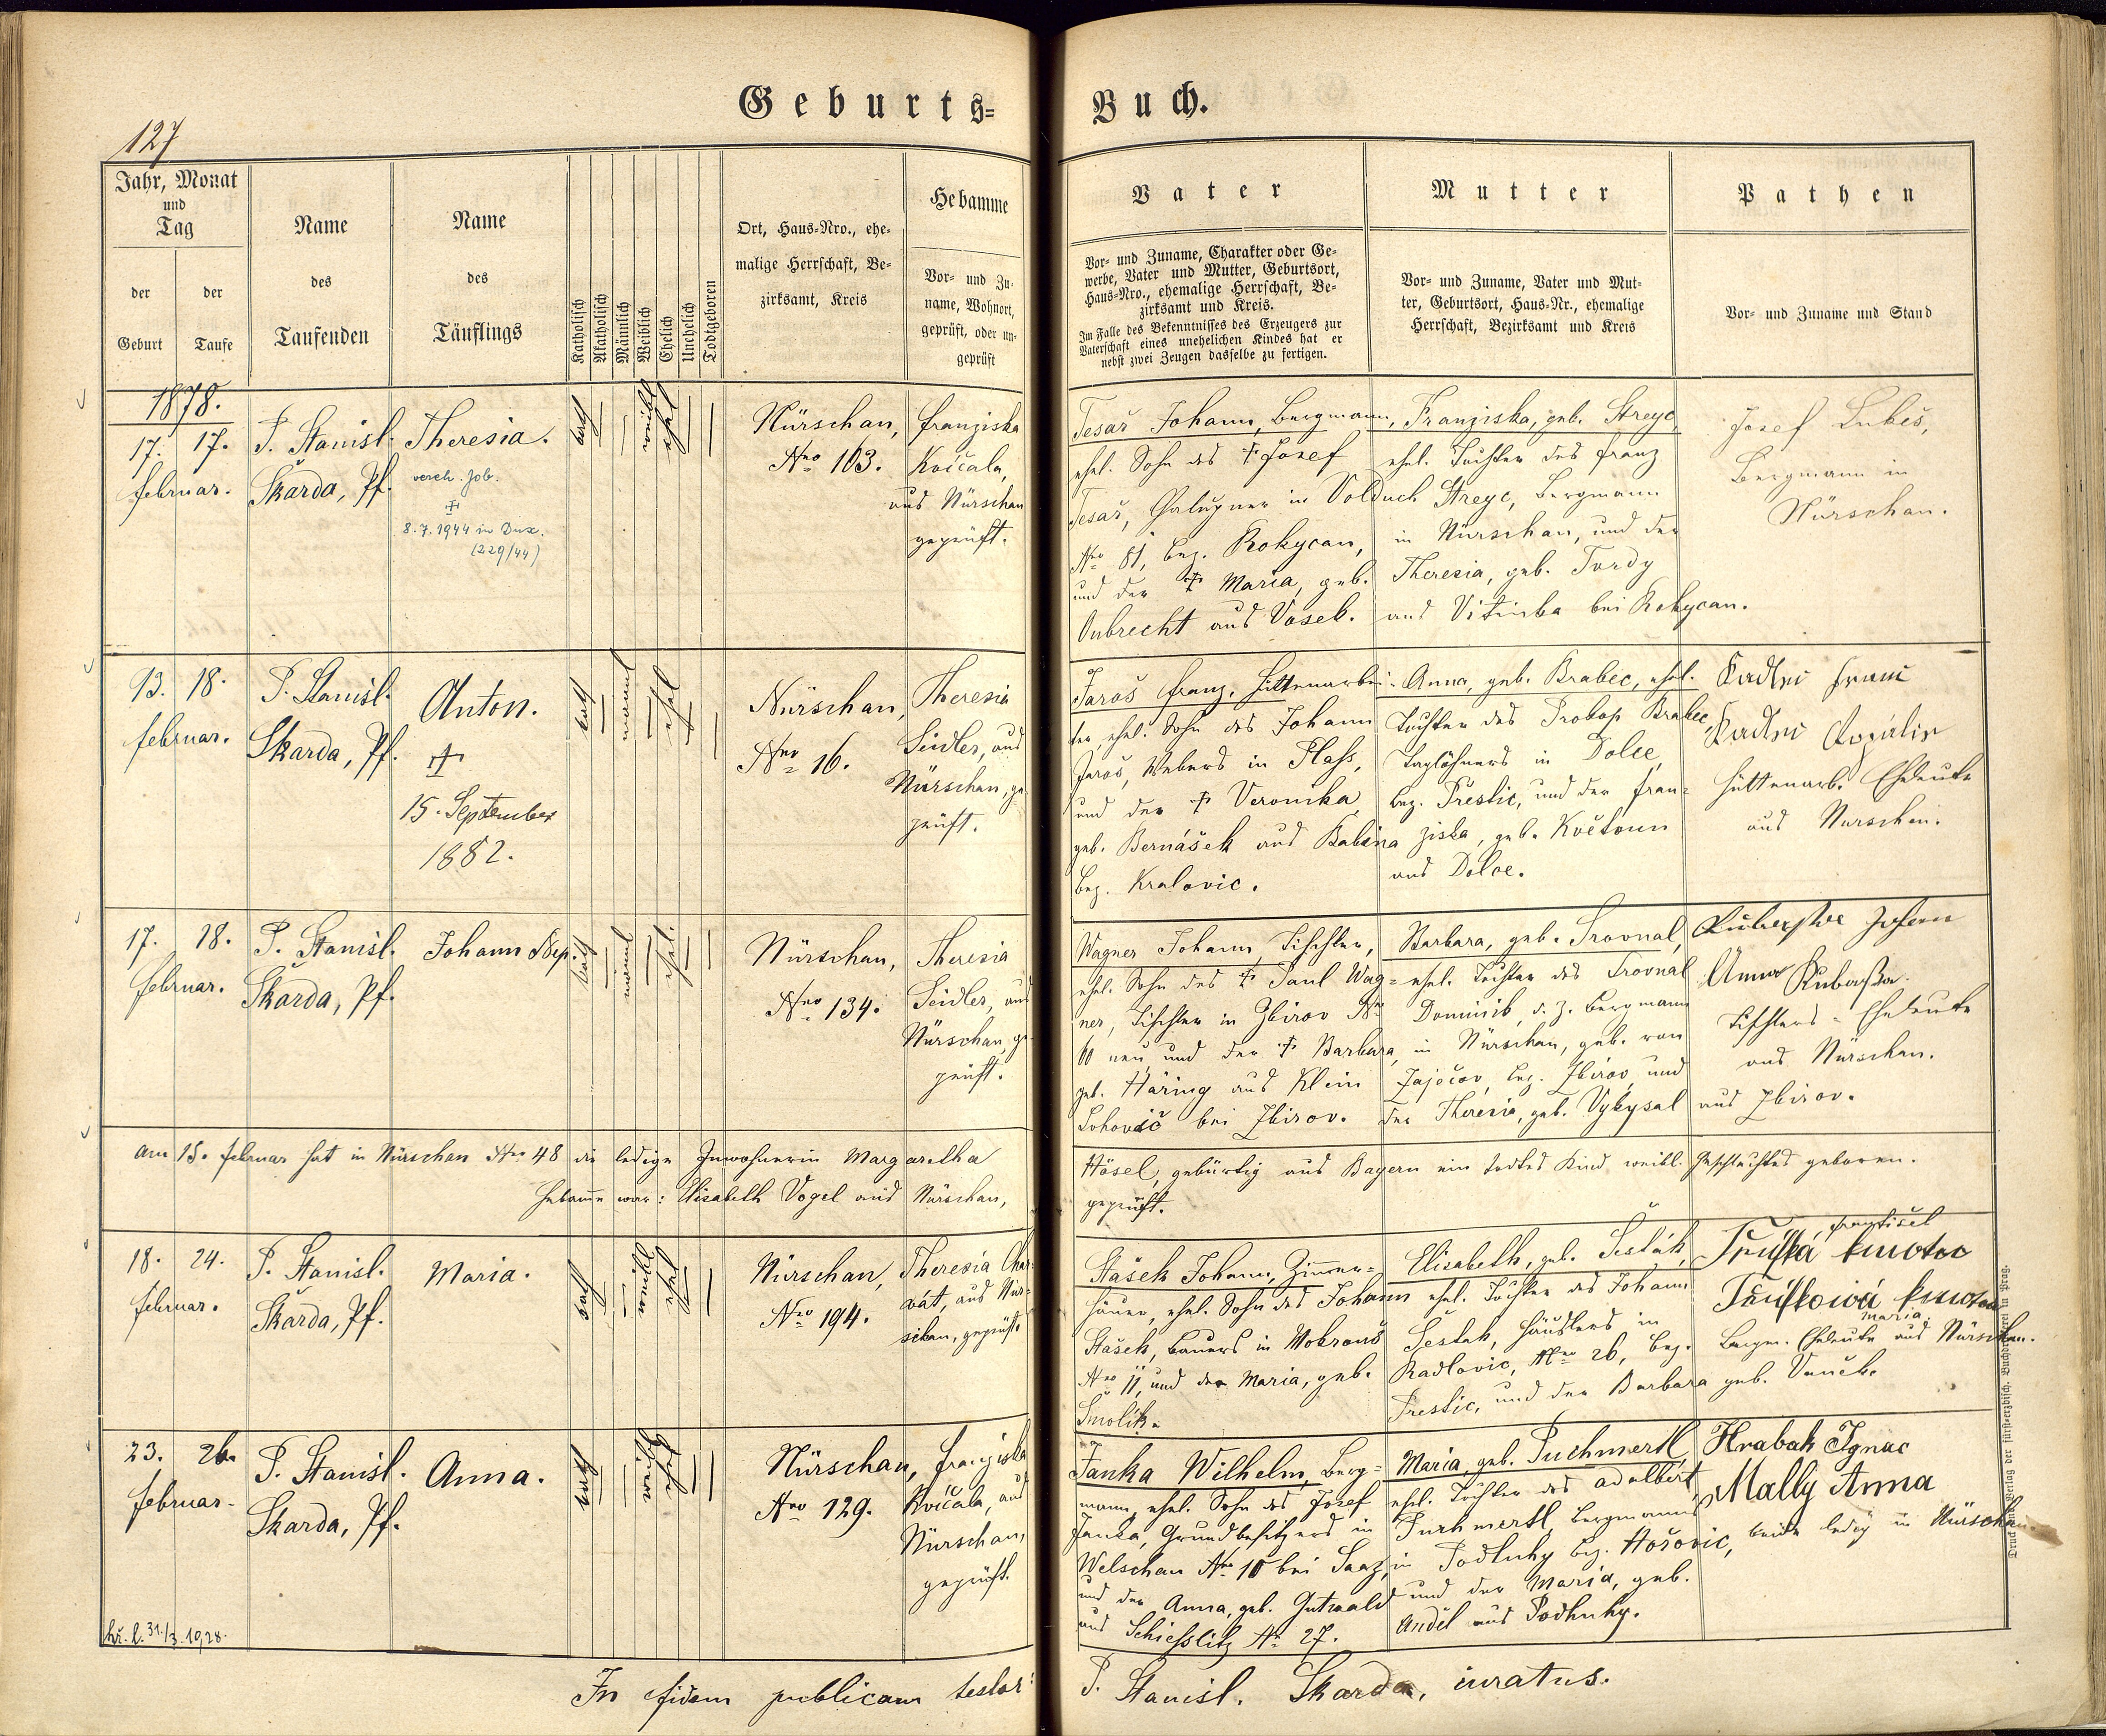 Geburts=Buch.
127
Jahr, Monat
und
Tag
der
Geburt
der
Taufe
Name
des
Taufenden
Name
des
Täuflings
Katholisch
Akatholisch
Männlich
Weiblich
Ehelich
Unehelich
Todtgeboren
Ort, Haus=Nro., ehe=
malige Herrschaft, Be=
zirksamt, Kreis
Hebamme
Vor= und Zu=
name, Wohnort,
geprüft, oder un=
geprüft
Vater
Vor= und Zuname, Charakter oder Ge=
werbe, Vater und Mutter, Geburtsort,
Haus=Nro., ehemalige Herrschaft, Be=
zirksamt und Kreis.
Im Falle des Bekenntnisses des Erzeugers zur
Vaterschaft eines unehelichen Kindes hat er
nebst zwei Zeugen dasselbe zu fertigen.
Mutter
Vor= und Zuname, Vater und Mut=
ter, Geburtsort, Haus=Nr., ehemalige
Herrschaft, Bezirksamt und Kreis
Pathen
Vor= und Zuname und Stand
1878.
17. 17.
februar.
P. Stanisl.
Škarda, Pf.
Theresia.
verch. Job.
8.7.1944 in Dux.
(229/44)
kath
weibl
ehel
Nürschan,
Nro 103.
franziska
Kvičala,
aus Nürschan
geprüft.
Tesař Johann, Bergmann,
ehel. Sohn des † Josef
Tesař, Chalupner in Volduch
Nro 81, bez. Rokycan,
und der † Maria, geb.
Onbrecht aus Voseb.
Franziska, geb. Streyc,
ehel. Tochter des franz
Streyc, Bergmann
in Nürschan, und der
Theresia, geb. Tvrdy
aus Vitinka bei Rokycan.
Josef Lukeš,
Bergmann in
Nürschan.
13. 18.
februar.
P. Stanisl.
Skarda, Pf.
Anton.
†
15. September
1882.
kath
männl
ehel
Nürschan,
Nro 16.
Theresia
Seidler, aus
Nürschan, ge
prüft.
Jaroš franz, Hüttenarbei=
ter, ehel. Sohn des Johann
Jaroš, Webers in Plass,
und der † Veronika
geb. Bernášek aus Babina
bez. Kralovic.
Anna, geb. Brabec, ehel.
Tochter des Prokop Brabec,
Taglöhners in Dolce,
bez. Prestic, und der fran=
ziska, geb. Květoun
aus Dolce.
Hüttenarb. Eheleute
aus Nürschan.
17. 18.
februar.
P. Stanisl.
Škarda, Pf.
Johann Nep.
kath
männl
ehel.
Nürschan,
Nro 134.
Theresia
Seidler, aus
Nürschan, ge
prüft.
Wagner Johann, Tischler,
ehel. Sohn des † Paul Wag=
ner, Tischler in Zbirov Nro
60 neu, und der † Barbara,
geb. Häring aus Klein
Lohovič bei Zbirov.
Barbara, geb. Trovnal,
ehel. Tochter des Trovnal
Dominik, d. Z. Bergmann
in Nürschan, geb. von
Zaječov, bez. Zbirov, und
der Theresia, geb. Vykysal aus Zbirov.
Anna
Tischlers=Eheleute
aus Nürschan.
am 15. februar hat in Nürschan Nro 48 die ledige Inwohnerin Margaretha Hösel, gebürtig aus Bayern ein todtes Kind weibl. Geschlechtes geboren.
Hebamme war: Elisabeth Vogel aus Nürschan, geprüft.
18. 24.
februar.
P. Stanisl.
Škarda, Pf.
Maria.
kath
weibl
ehel
Nürschan,
Nro 194.
Theresia Char=
vát, aus Nür=
schan, geprüft.
Stašek Johann, Zimmer=
häuer, ehel. Sohn des Johann
Stašek, Bauers in Mokrouš
Nro 11, und der Maria, geb.
Smolík.
Elisabeth, geb. Šesták,
ehel. Tochter des Johann
Šesták, Häuslers in
Radlovic, Nro 26, bez.
Prestic, und der Barbara geb. Vaněk.
František
kmotor
kmotra
Maria
Bergm. Eheleute aus Nürschan.
23. 26.
februar.
P. Stanisl.
Skarda, Pf.
Anna.
kath
weibl
ehel
Nürschan,
Nro 129.
franziska
Kvičala, aus
Nürschan,
geprüft.
Janka Wilhelm, Berg=
mann, ehel. Sohn des Josef
Janka, Grundbesitzers in
Welschau Nro 10 bei Saaz,
und der Anna, geb. Gutwald
aus Schiesslitz Nr. 27.
Maria, geb. Puchmertl,
ehel. Tochter des Adalbert
Puchmertl, Bergmanns
in Podluhy bez. Hořovic,
und der Maria, geb.
Anděl aus Podluhy.
Hrabak Ignac
Mally Anna
beide ledig in Nürschan.
31./3. 1928.
In fidem publicam testor: P. Stanisl. Skarda, curatus.